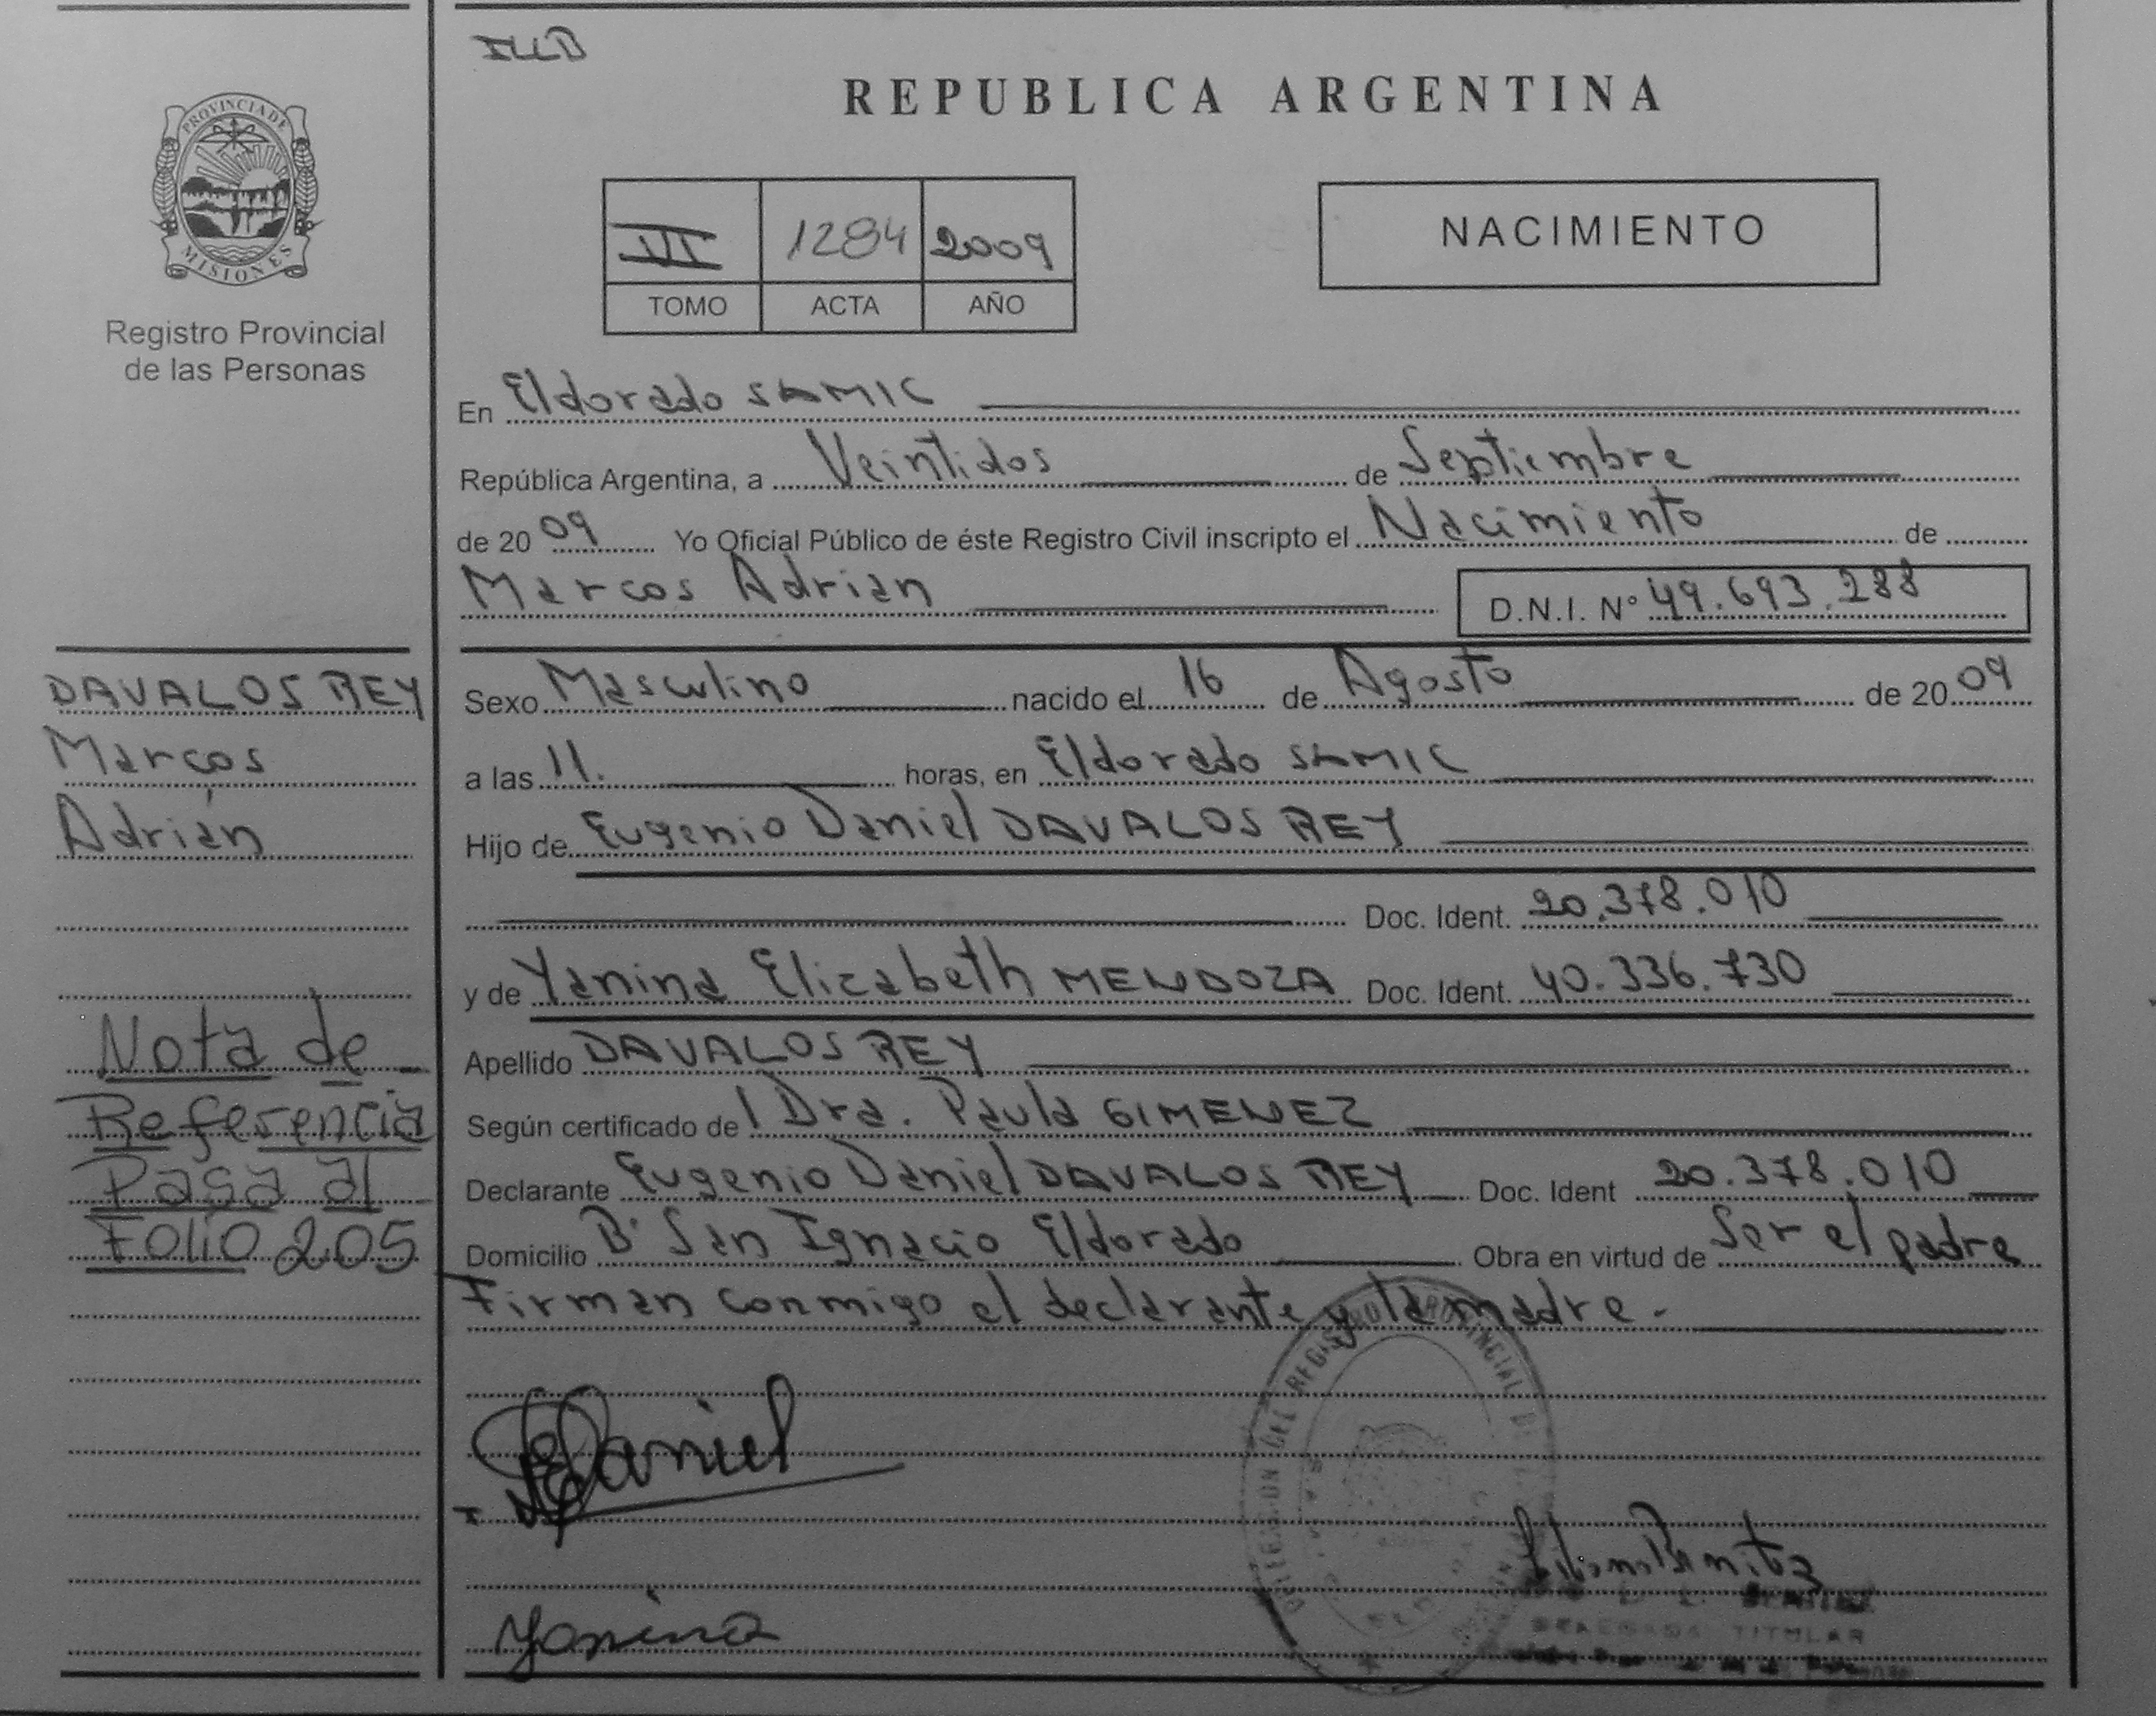 ILLB
REPUBLICA ARGENTINA
PROVINCIA DE
MISIONES
Registro Provincial
de las Personas
III 1284 2009
TOMO ACTA AÑO
NACIMIENTO
En Eldorado SAMIC
República Argentina, a Veintidos de Septiembre
de 2009 Yo Oficial Público de éste Registro Civil inscripto el Nacimiento de
Marcos Adrian D.N.I. Nº 49.693.288
DAVALOS REY
Marcos
Adrián
Sexo Masculino nacido el 16 de Agosto de 2009
a las 11. horas, en Eldorado SAMIC
Hijo de Eugenio Daniel DAVALOS REY
Doc. Ident. 20.378.010
y de Yanina Elizabeth MENDOZA Doc. Ident. 40.336.730
Apellido DAVALOS REY
Según certificado de Dra. Paula GIMENEZ
Declarante Eugenio Daniel DAVALOS REY Doc. Ident 20.378.010
Domicilio Bº San Ignacio Eldorado Obra en virtud de Ser el padre
Firman conmigo el declarante y la madre.-
Nota de
Referencia
Pasa al
Folio 205
Daniel
Yanina
DELEGACION DEL REGISTRO PROVINCIAL DE
Benitez
TITULAR